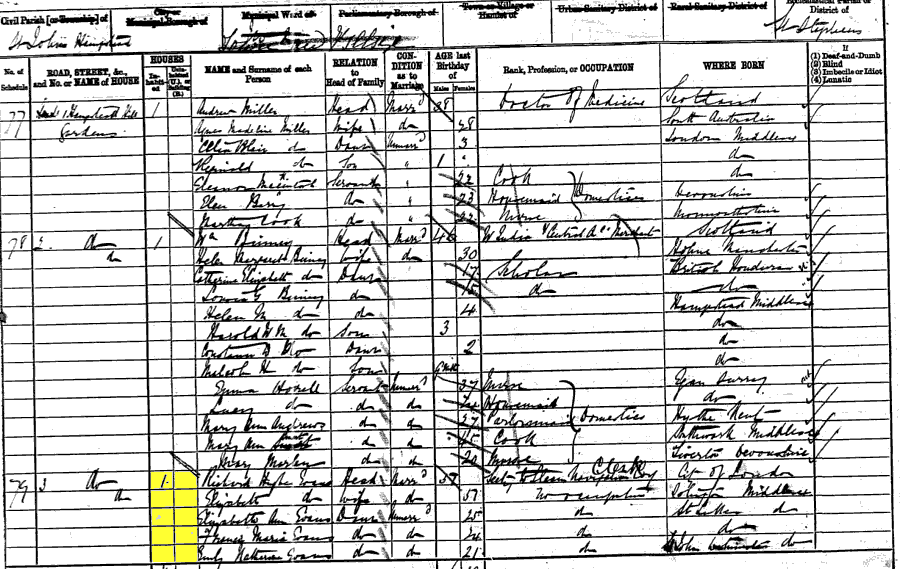 Civil Parish [or Township] of
City or Municipal Borough of
Municipal Ward of
Parliamentary Borough of
Town or Village or Hamlet of
Urban Sanitary District of
Rural Sanitary District of
Ecclesiastical Parish or District of
St Johns Hampstead
St Stephens
No. of Schedule
ROAD, STREET, &c., and No. or NAME of HOUSE
HOUSES
In-habited
Uninhabited (U.), or Building (B.)
NAME and Surname of each Person
RELATION to Head of Family
CONDITION as to Marriage
AGE last Birthday of
Males
Females
Rank, Profession, or OCCUPATION
WHERE BORN
If
(1) Deaf-and-Dumb
(2) Blind
(3) Imbecile or Idiot
(4) Lunatic
77 1 Hampstead Hill 1 Andrew Miller Head Marrd 38 Doctor of Medicine Scotland
Gardens Agnes Madeline Miller Wife do 28 South Australia
Blair do Daur Unmarrd 3 London Middlesex
Reginald do Son " 1 do
Eleanor Servant " 22 Cook do
Ellen Berry do " 23 Housemaid Domestics Devonshire
Martha Cook do " 22 Nurse Monmouthshire
78 2 do 1 Wm Binney Head Marrd 46 W India & Central Am Merchant Scotland
do Helen Margaret Binney Wife do 30
Catherine Elizabeth do Daur 17 Scholar British Honduras
Louisa G Binney do 15 do do
Helen M do do 4 Hampstead Middlesex
Harold W M do Son 3 do
Constance D Do Daur 2 do
Malcolm H do Son do
Emma Servant Unmarrd 37 Nurse Surrey
Lucy do do do Housemaid do
Mary Ann Andrews do do 27 Parlormaid Domestics Hythe Kent
Mary Ann do do 45 Cook Southwark Middlesex
Morley do do 20 Nurse Tiverton Devonshire
79 3 do 1 Richard Hughes Evans Head Marrd 57 Secty to Steam Navigation Coy Clerk City of London
do Elizabeth do Wife do 51 No occupation Islington Middlesex
Elizabeth Ann Evans Daur Unmarrd 25 do do
Frances Maria Evans do do 24 do do
Emily Katherine Evans do do 21 do St John Westminster do